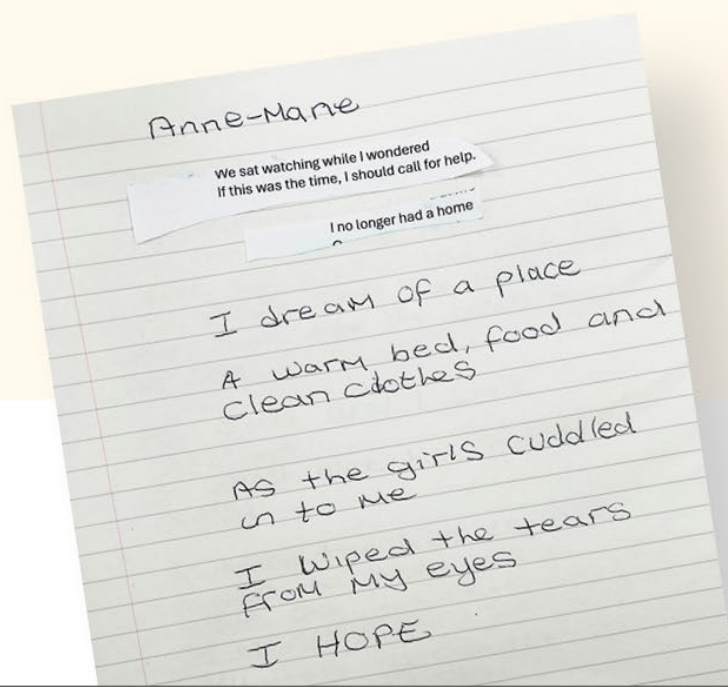 Anne-Marie
We sat watching while I wondered
If this was the time, I should call for help.
I no longer had a home
I dream of a place
A warm bed, food and
clean clothes
As the girls cuddled
in to me
I wiped the tears
from my eyes
I HOPE